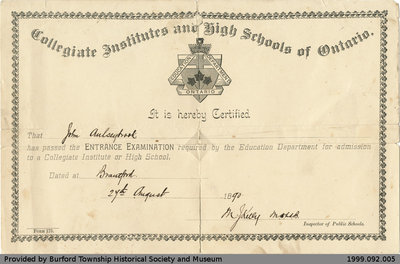 Collegiate Institutes and High Schools of Ontario.
ONTARIO
It is hereby Certified
That John
has passed the ENTRANCE EXAMINATION required by the Education Department for admission
to a Collegiate Institute or High School.
Dated at Brantford
24th August 1890
M J Kelly
Inspector of Public Schools.
FORM 119.
Provided by Burford Township Historical Society and Museum
1999.092.005